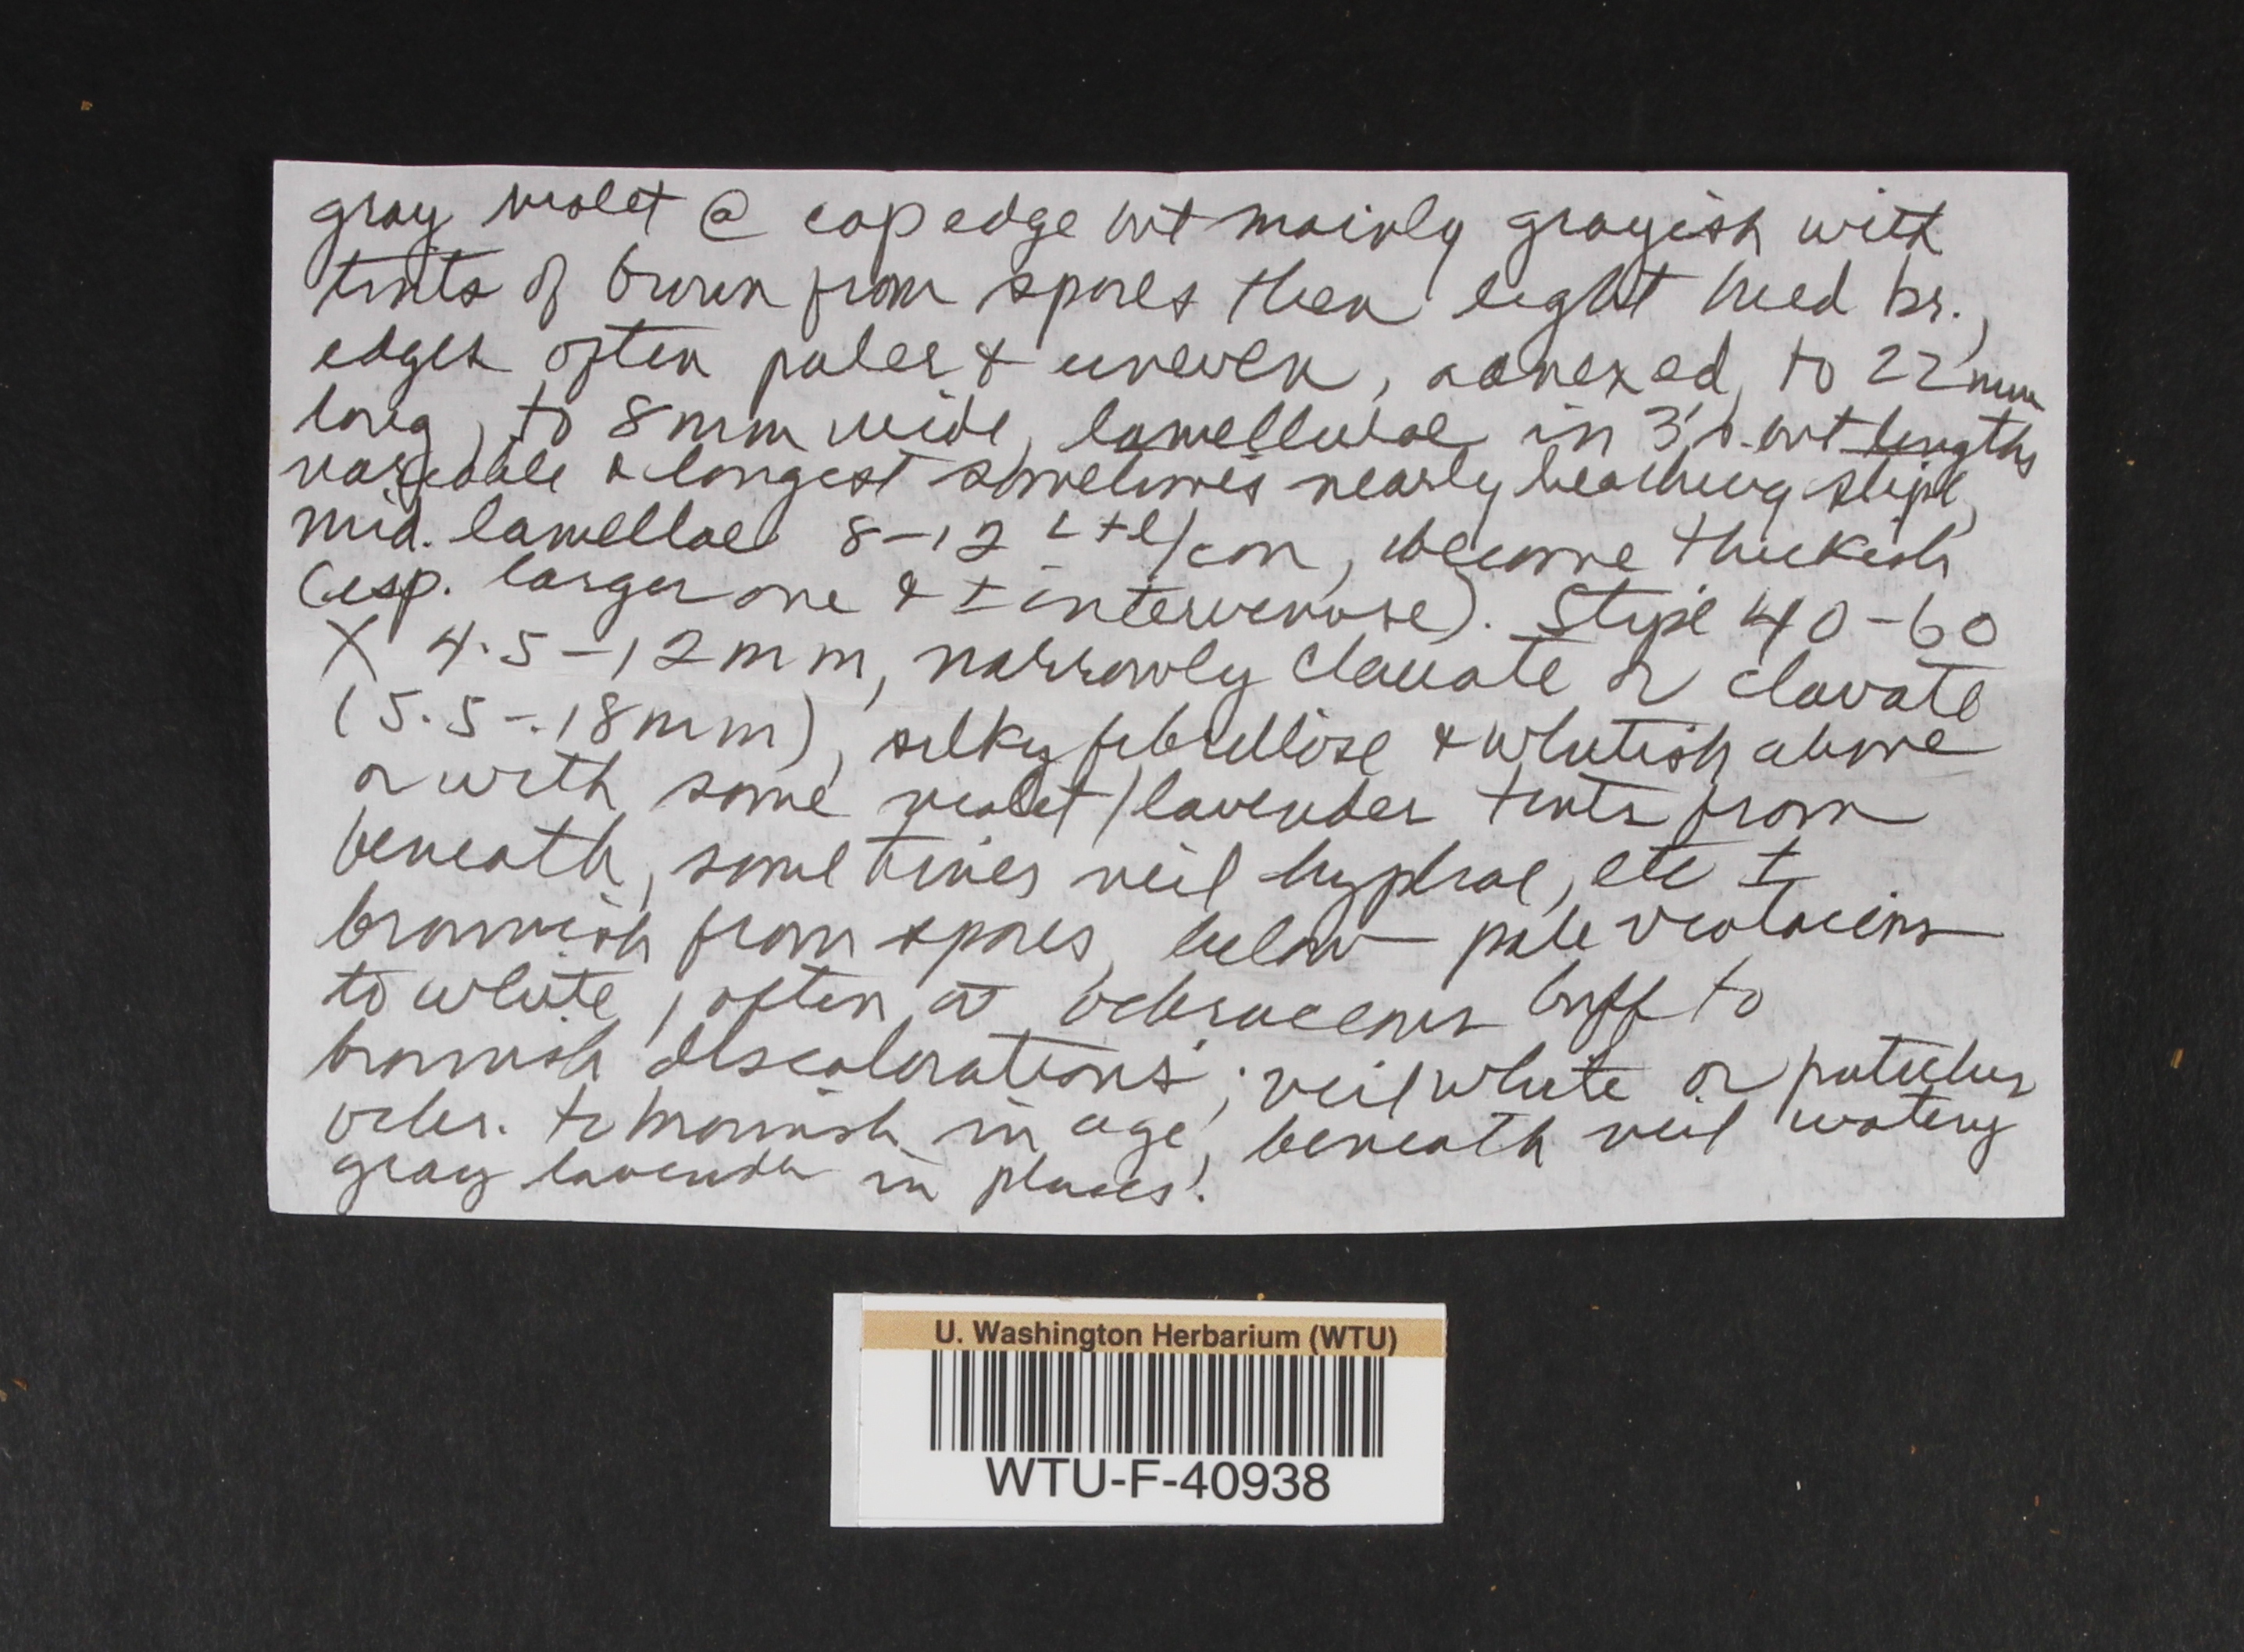 gray violet @ cap edge but mainly grayish with
tints of brown from spores then light med br.,
edges often paler & uneven, adnexed, to 22mm
long, to 8mm wide, lamellulae in 3's but lengths
variable & longest sometimes nearly reaching stipe,
mid. lamellae 8-12 L+l/cm, become thickish
(esp. larger one & ± intervenose). Stipe 40-60
X 4.5-12mm, narrowly clavate or clavate
(5.5-18mm), silky fibrillose & whitish above
or with some violet/lavender tints from
beneath, sometimes veil hyphae, etc ±
brownish from spores, below pale violaceous
to white, often ochraceous buff to
brownish discolorations; veil white or patches
ochr. to brownish in age, beneath veil watery
gray lavender in places.
U. Washington Herbarium (WTU)
WTU-F-40938